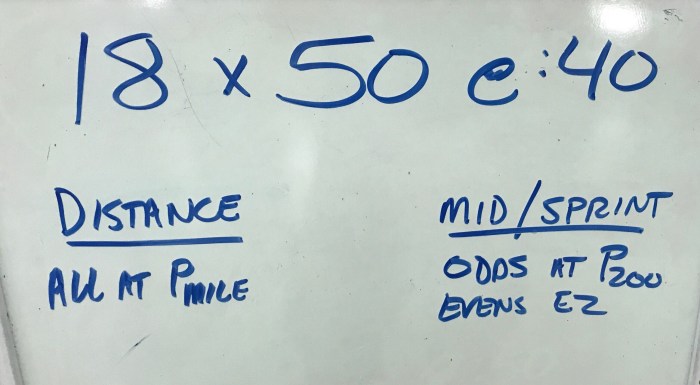 18 x 50 @ :40
DISTANCE
ALL AT PMILE
MID/SPRINT
ODDS AT P200
EVENS EZ